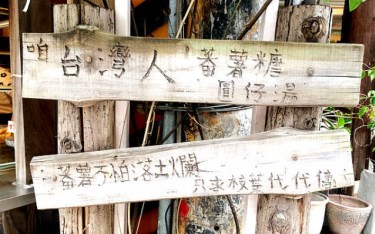 咱台灣人蕃薯糖
圓仔湯
蕃薯不怕落土爛
只求枝葉代代傳